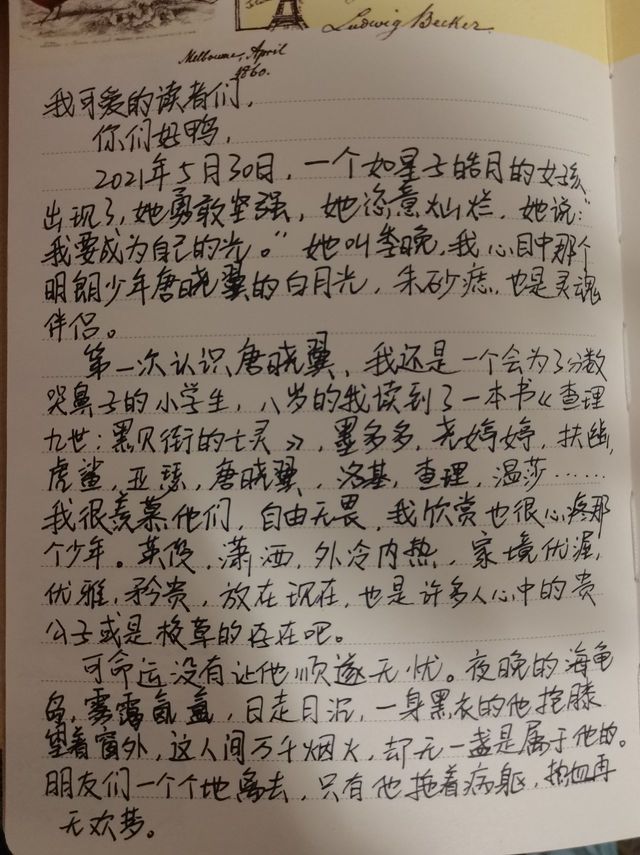 Ludwig Becker
Melbourne, April
1860.
我可爱的读者们，
你们好鸭，
2021年5月30日，一个如星子皓月的女孩
出现了，她勇敢坚强，她恣意灿烂，她说：“
我要成为自己的光。”她叫季晚，我心目中那个
明朗少年唐晓翼的白月光，朱砂痣，也是灵魂
伴侣。
第一次认识唐晓翼，我还是一个会为了分数
哭鼻子的小学生，八岁的我读到了一本书《查理
九世：黑贝街的七灵》，墨多多，尧婷婷，扶幽，
虎鲨，亚瑟，唐晓翼，洛基，查理，温莎……
我很羡慕他们，自由无畏，我欣赏也很心疼那
个少年。英俊，潇洒，外冷内热，家境优渥，
优雅，矜贵，放在现在，也是许多人心中的贵
公子或是校草的存在吧。
可命运没有让他顺遂无忧。夜晚的海龟
岛，雾霭氤氲，日走月沉，一身黑衣的他抱膝
望着窗外，这人间万千烟火，却无一盏是属于他的。
朋友们一个个地离去，只有他拖着病躯，热血再
无欢梦。